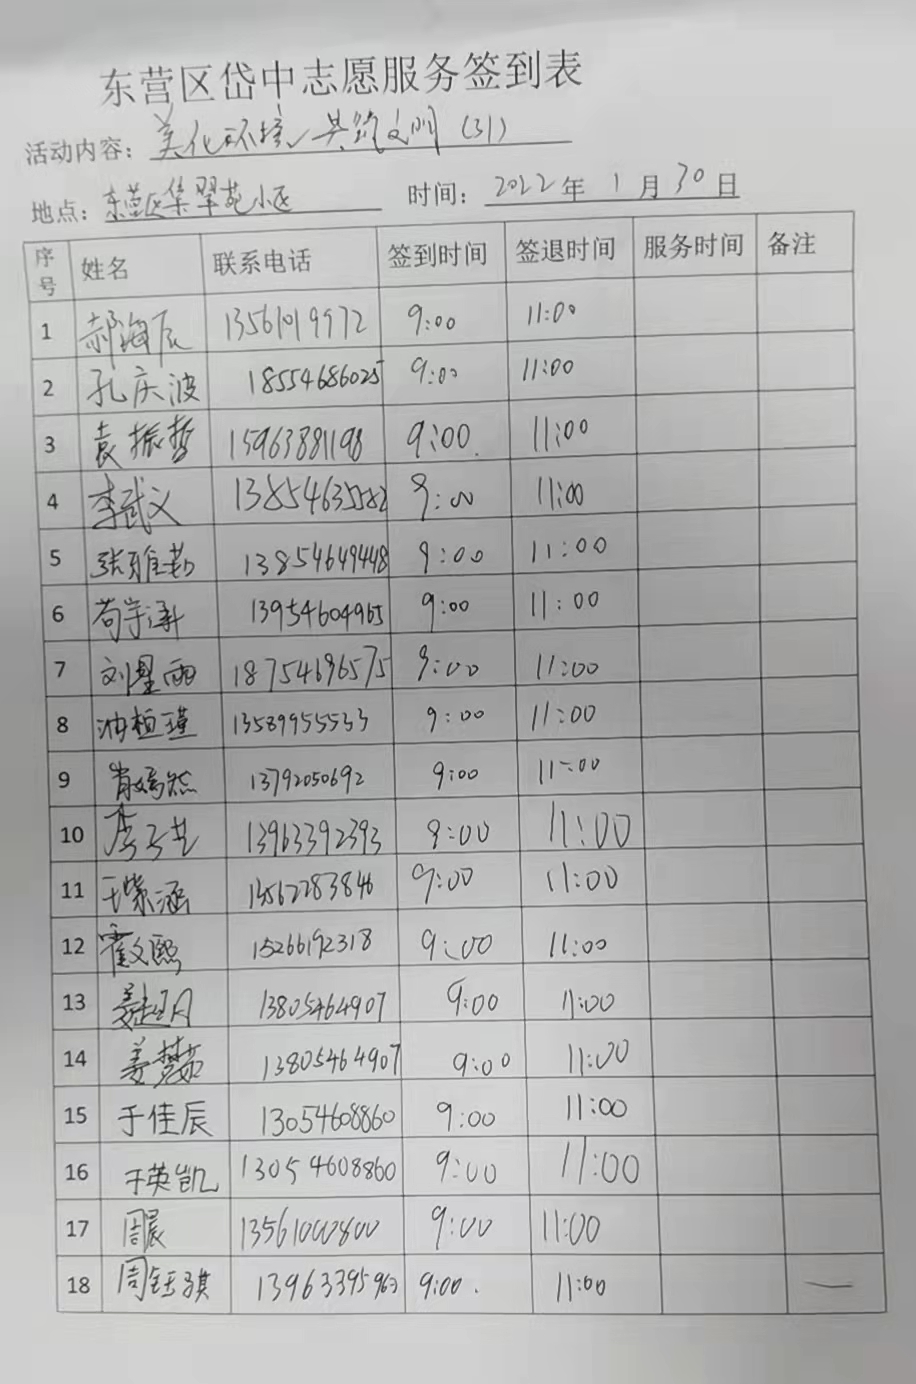 东营区岱中志愿服务签到表
活动内容：美化环境，共筑文明（31）
地点：东营区集翠苑小区 时间：2022年1月30日
序号 姓名 联系电话 签到时间 签退时间 服务时间 备注
1 郝海辰 13561019972 9:00 11:00
2 孔庆波 18554686025 9:00 11:00
3 袁振哲 15963881198 9:00 11:00
4 李武义 13854635582 9:00 11:00
5 张雅茹 13854649448 9:00 11:00
6 苟宇涵 13954604965 9:00 11:00
7 刘星雨 18754696575 9:00 11:00
8 油植瑾 13589955533 9:00 11:00
9 肖嫣然 13792050692 9:00 11:00
10 13963392393 9:00 11:00
11 王紫涵 13562283846 9:00 11:00
12 霍文熙 15266192318 9:00 11:00
13 13805464907 9:00 11:00
14 姜梦茹 13805464907 9:00 11:00
15 于佳辰 13054608860 9:00 11:00
16 于英凯 13054608860 9:00 11:00
17 周晨 13561000800 9:00 11:00
18 周钰琪 13963395963 9:00 11:00 —